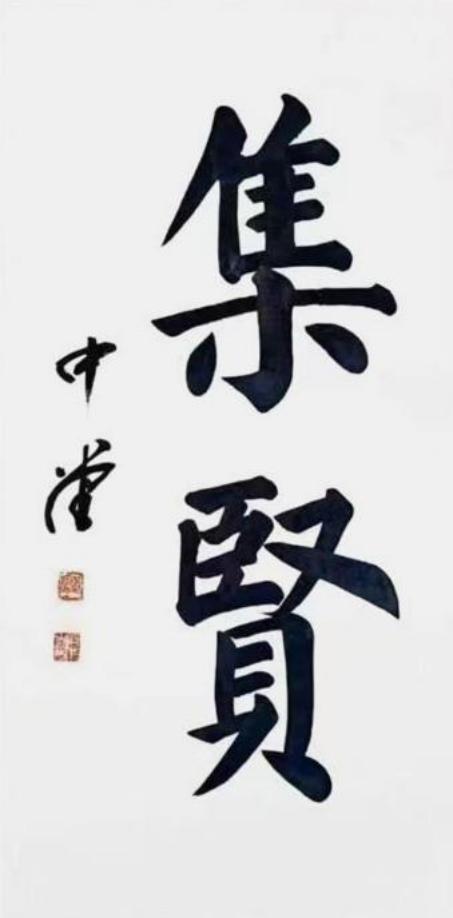 集賢
中堂